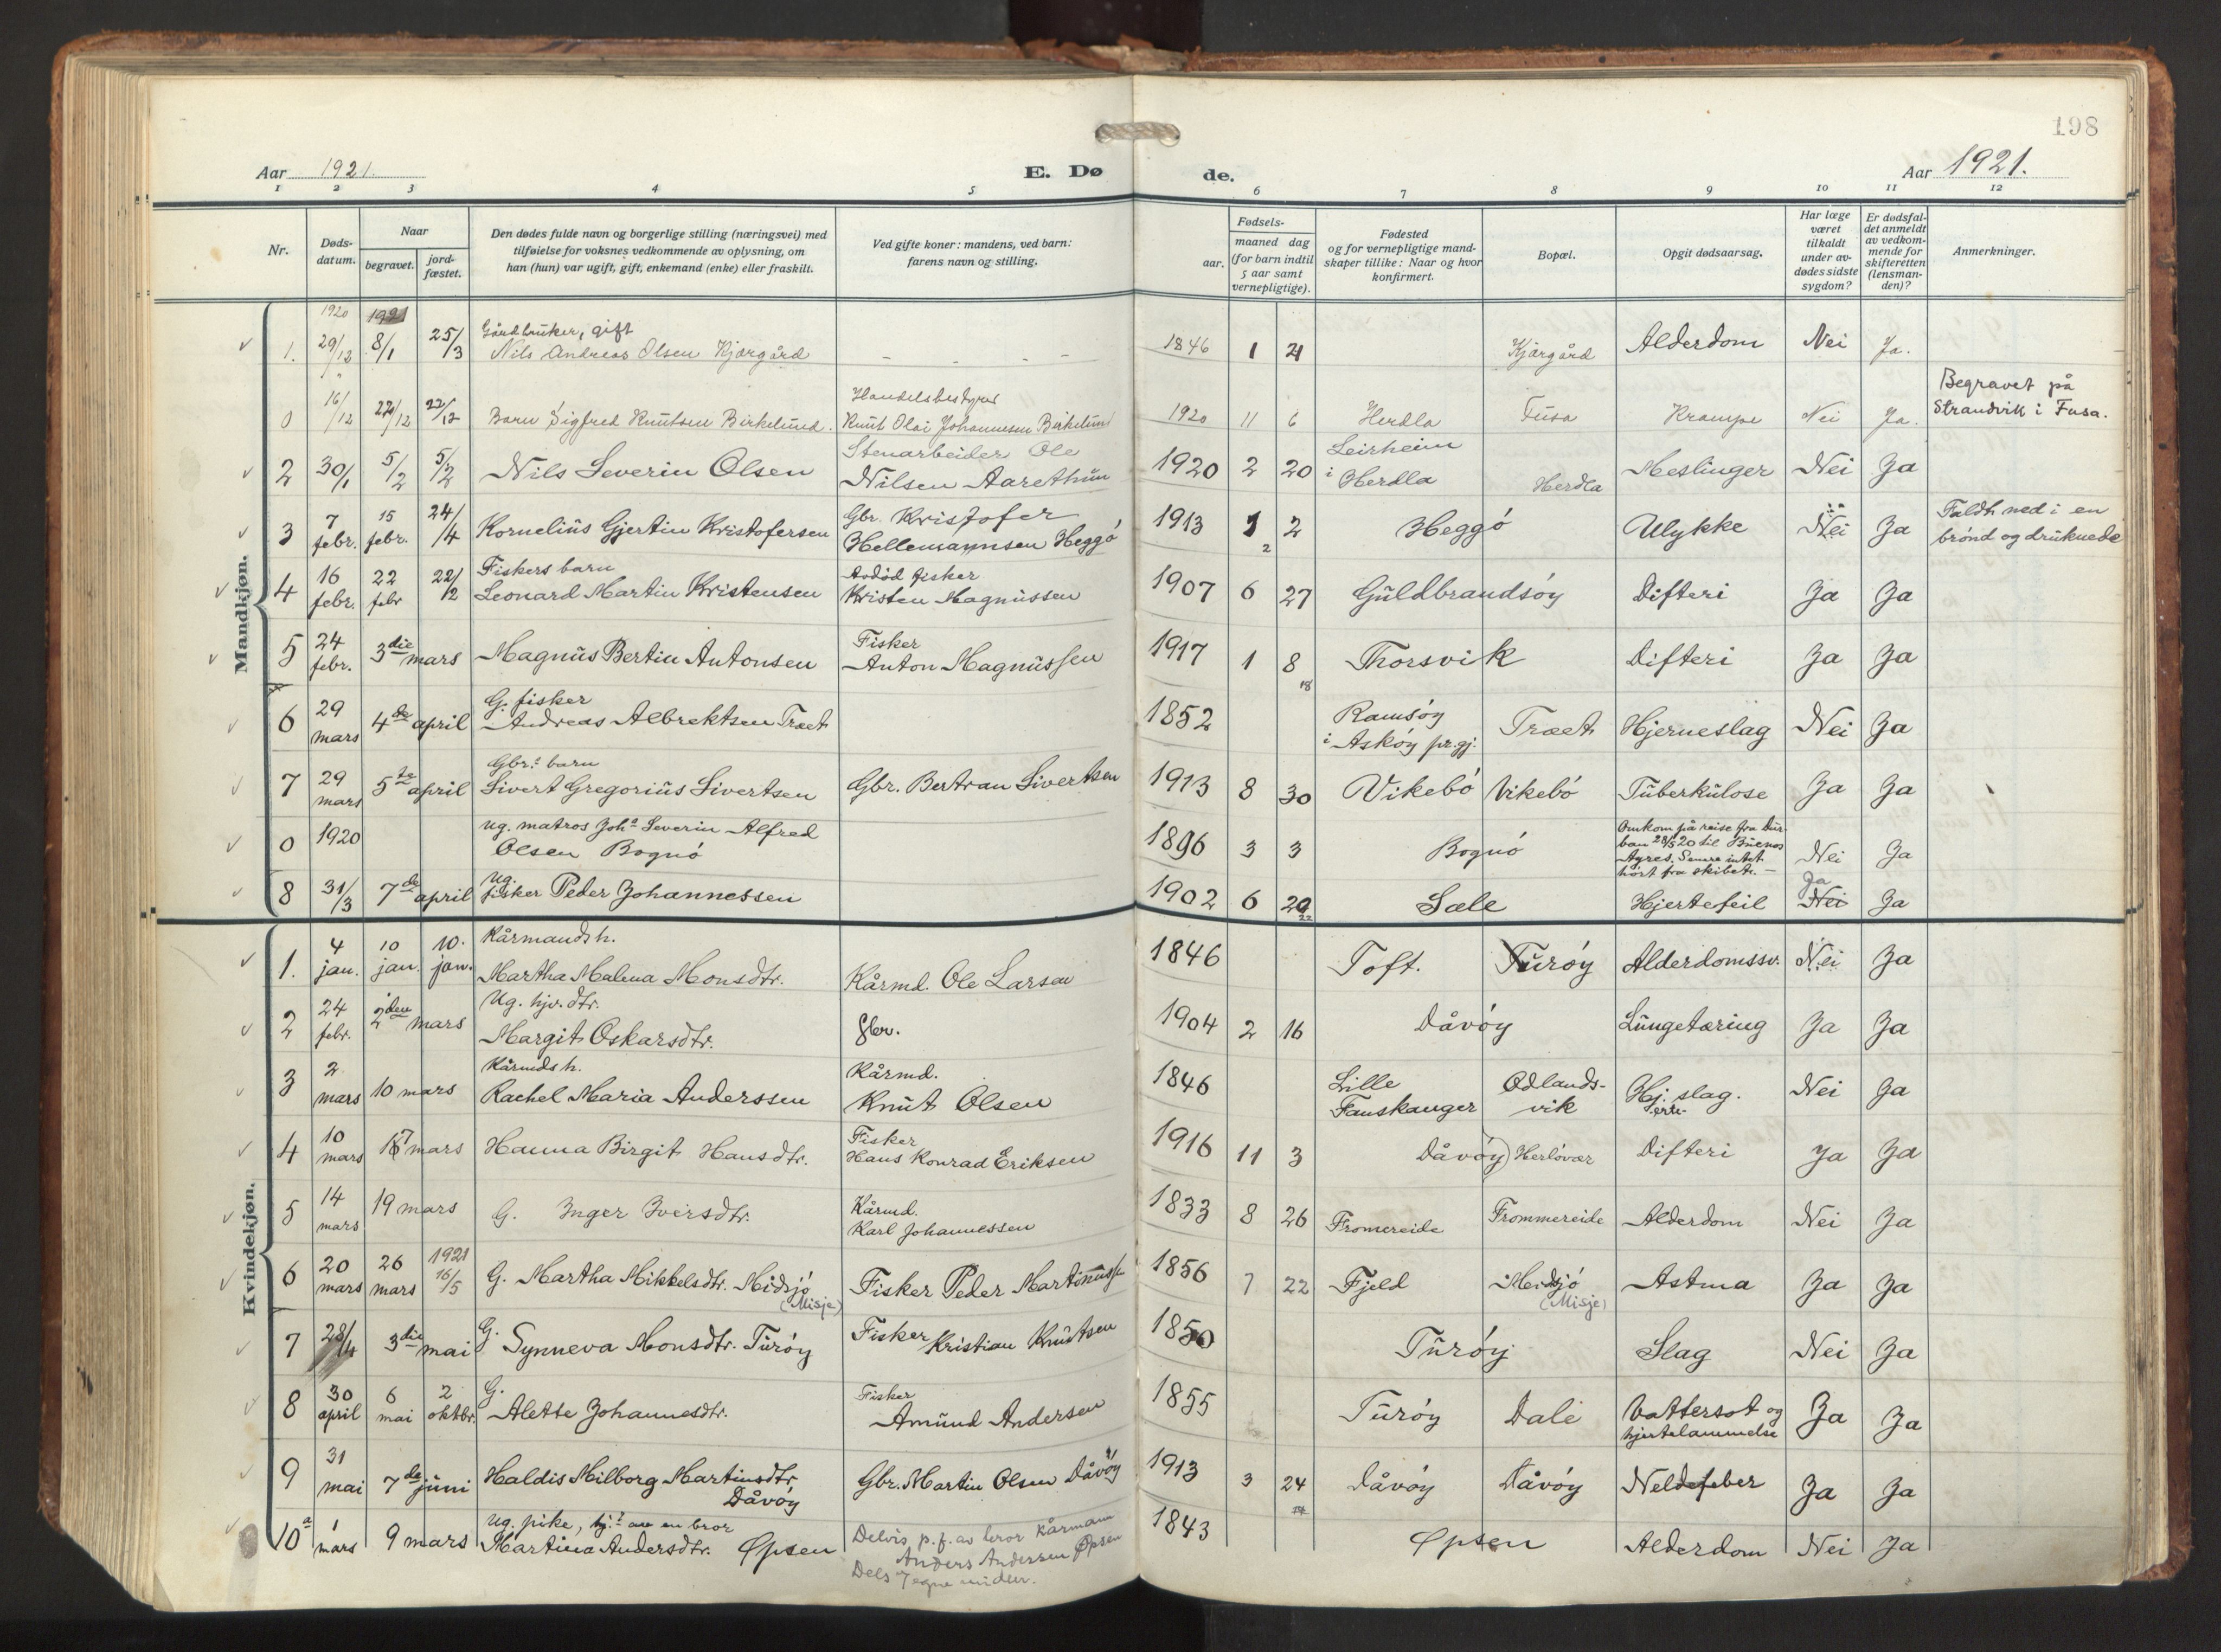 198
Aar 1921.
E. Dø
de.
Aar 1921.
1 2 3 4 5 6 7 8 9 10 11 12
Nr.
Døds-
datum.
Naar
begravet.
jord-
fæstet.
Den dødes fulde navn og borgerlige stilling (næringsvei) med
tilføielse for voksnes vedkommende av oplysning, om
han (hun) var ugift, gift, enkemand (enke) eller fraskilt.
Ved gifte koner: mandens, ved barn:
farens navn og stilling.
Fødsels-
aar.
maaned dag
(for barn indtil
5 aar samt
vernepligtige).
Fødested
og for vernepligtige mand-
skaper tillike: Naar og hvor
konfirmert.
Bopæl.
Opgit dødsaarsag.
Har læge
været
tilkaldt
under av-
dødes sidste
sygdom?
Er dødsfal-
det anmeldt
av vedkom-
mende for
skifteretten
(lensman-
den)?
Anmerkninger.
Mandkjøn.
1920 1921
Gårdbruker, gift
1. 29/12 8/1 25/3 Nils Andreas Olsen Kjærgård - - - - 1846 1 21 Kjærgård Alderdom Nei Ja.
" Handelsbestyrer Begravet på
0 16/12 22/12 22/12 Barn Sigfred Knutsen Birkelund. Knut Olai Johannesen Birkelund 1920 11 6 Herdla Fusa Krampe Nei Ja. Strandvik i Fusa.
Stenarbeider Ole Leirheim
2 30/1 5/2 5/2 Nils Severin Olsen Nilsen Aarethun 1920 2 20 i Herdla Herdla Meslinger Nei Ja
7 15 24 Gbr. Kristofer Faldt ned i en
3 febr. febr. /4 Kornelius Gjertin Kristofersen Hellemannsen Heggö 1913 1 2 2 Heggö Ulykke Nei Ja brönd og druknede
16 22 22/ Fiskers barn Avdöd fisker
4 febr. febr 2 Leonard Martin Kristensen Kristen Magnussen 1907 6 27 Guldbrandsöy Difteri Ja Ja
24 Fisker
5 febr. 3die mars Magnus Bertin Antonsen Anton Magnussen 1917 1 8 18 Thorsvik Difteri Ja Ja
29 G. fisker Ramsöy
6 mars 4de april Andreas Albrektsen Træet 1852 i Asköy pr.gj. Træet Hjerneslag Nei Ja
29 Gbr.s barn
7 mars 5te april Sivert Gregorius Sivertsen Gbr. Bertran Sivertsen 1913 8 30 Vikebö Vikebö Tuberkulose Ja Ja
Ug. matros Joh.s Severin Alfred Omkom på reise fra Dur-
0 1920 Olsen Bognö 1896 3 3 Bognö ban 28/5 20 til Buenos
Ayres. Senere intet Nei Ja
hört fra skibet. -
Ug. Ja
8 31/3 7de april fisker Peder Johannessen 1902 6 29 22 Sæle Hjertefeil Nei Ja
Kvindekjøn.
4 10 10. Kårmands h.
1. jan. jan. jan. Martha Malena Monsdtr. Kårmd. Ole Larsen 1846 Toft. Turöy Alderdomssv. Nei Ja
24 Ug. hjv. dtr.
2 febr. 2den mars Margit Oskarsdtr. Gbr. 1904 2 16 Dåvöy Lungetæring Ja Ja
2 Kårmds h. Kårmd. Lille Odlands-
3 mars 10 mars Rachel Maria Anderssen Knut Olsen 1846 Fauskanger vik Hj. slag. erte- Nei Ja
10 Fisker
4 mars 17 mars Hanna Birgit Hansdtr. Hans Konrad Eriksen 1916 11 3 Dåvöy) Herlövær Difteri Ja Ja
14 Kårmd.
5 mars 19 mars G. Inger Iversdtr. Karl Johannessen 1833 8 26 Fromereide Frommereide Alderdom Nei Ja
20 26 1921
6 mars mars 16/5 G. Martha Mikkelsdtr. Midsjö Fisker Peder Martinussen 1856 7 22 Fjeld Midsjö Astma Ja Ja
(Misje) (Misje)
7 28/4 3die mai G. Synneva Monsdtr. Turöy Fisker Kristian Knutsen 1850 Turöy Slag Nei Ja
30 6 2 G. Fisker Vattersot og
8 april mai oktbr. Alette Johannesdtr. Amund Andersen 1855 Turöy Dale hjertelammelse Ja Ja
31
9 mai 7de juni Haldis Milborg Martinsdtr. Gbr. Martin Olsen Dåvöy 1913 3 24 Dåvöy Dåvöy Neldefeber Ja Ja
Dåvöy
1 Ug. pike, hj. av en bror Delvis p.f. av bror kårmann
10a mars 9 mars Martina Andersdtr. Öpsen Anders Andersen Öpsen 1843 Öpsen Alderdom Nei Ja
Dels egne midler.